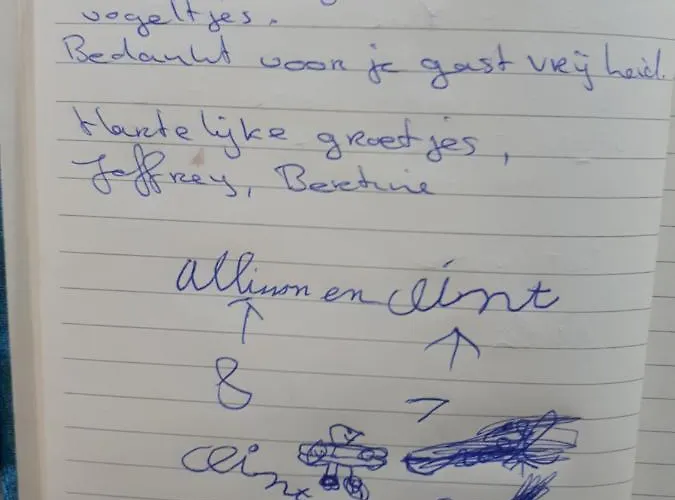 vogeltjes.
Bedankt voor je gast vrijheid.
Hartelijke groetjes,
Jeffrey, Beretine
allison en clint
8 7
clin